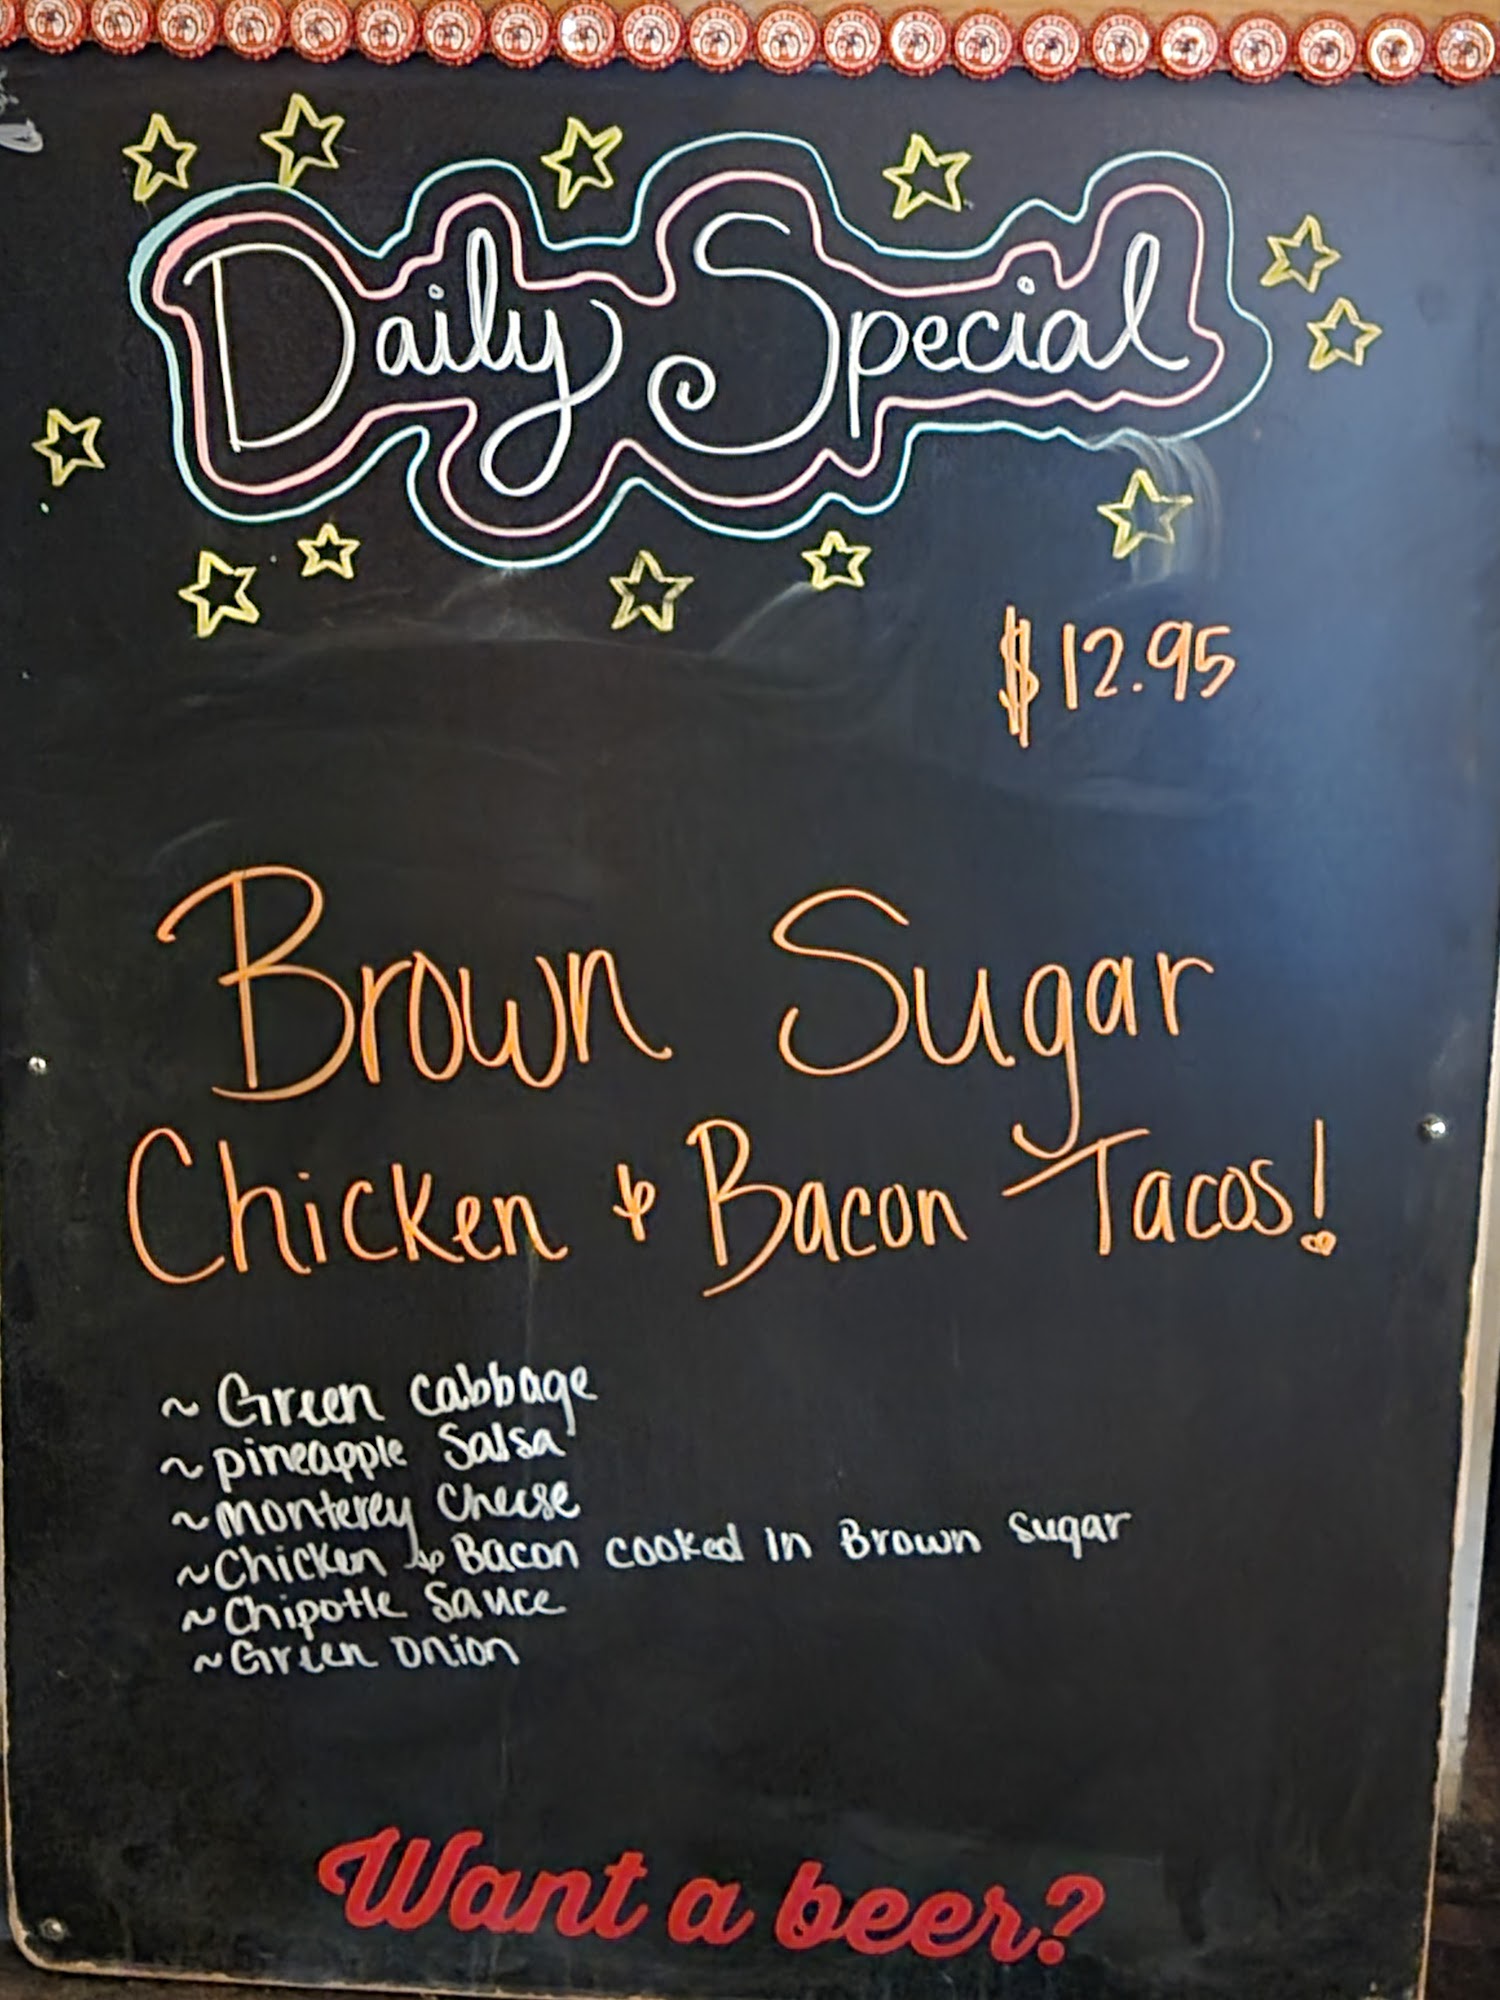 Daily Special
$12.95
Brown Sugar
Chicken & Bacon Tacos!
~ Green cabbage
~ pineapple Salsa
~ Monterey Cheese
~ Chicken & Bacon cooked in Brown sugar
~ Chipotle Sauce
~ Green onion
Want a beer?